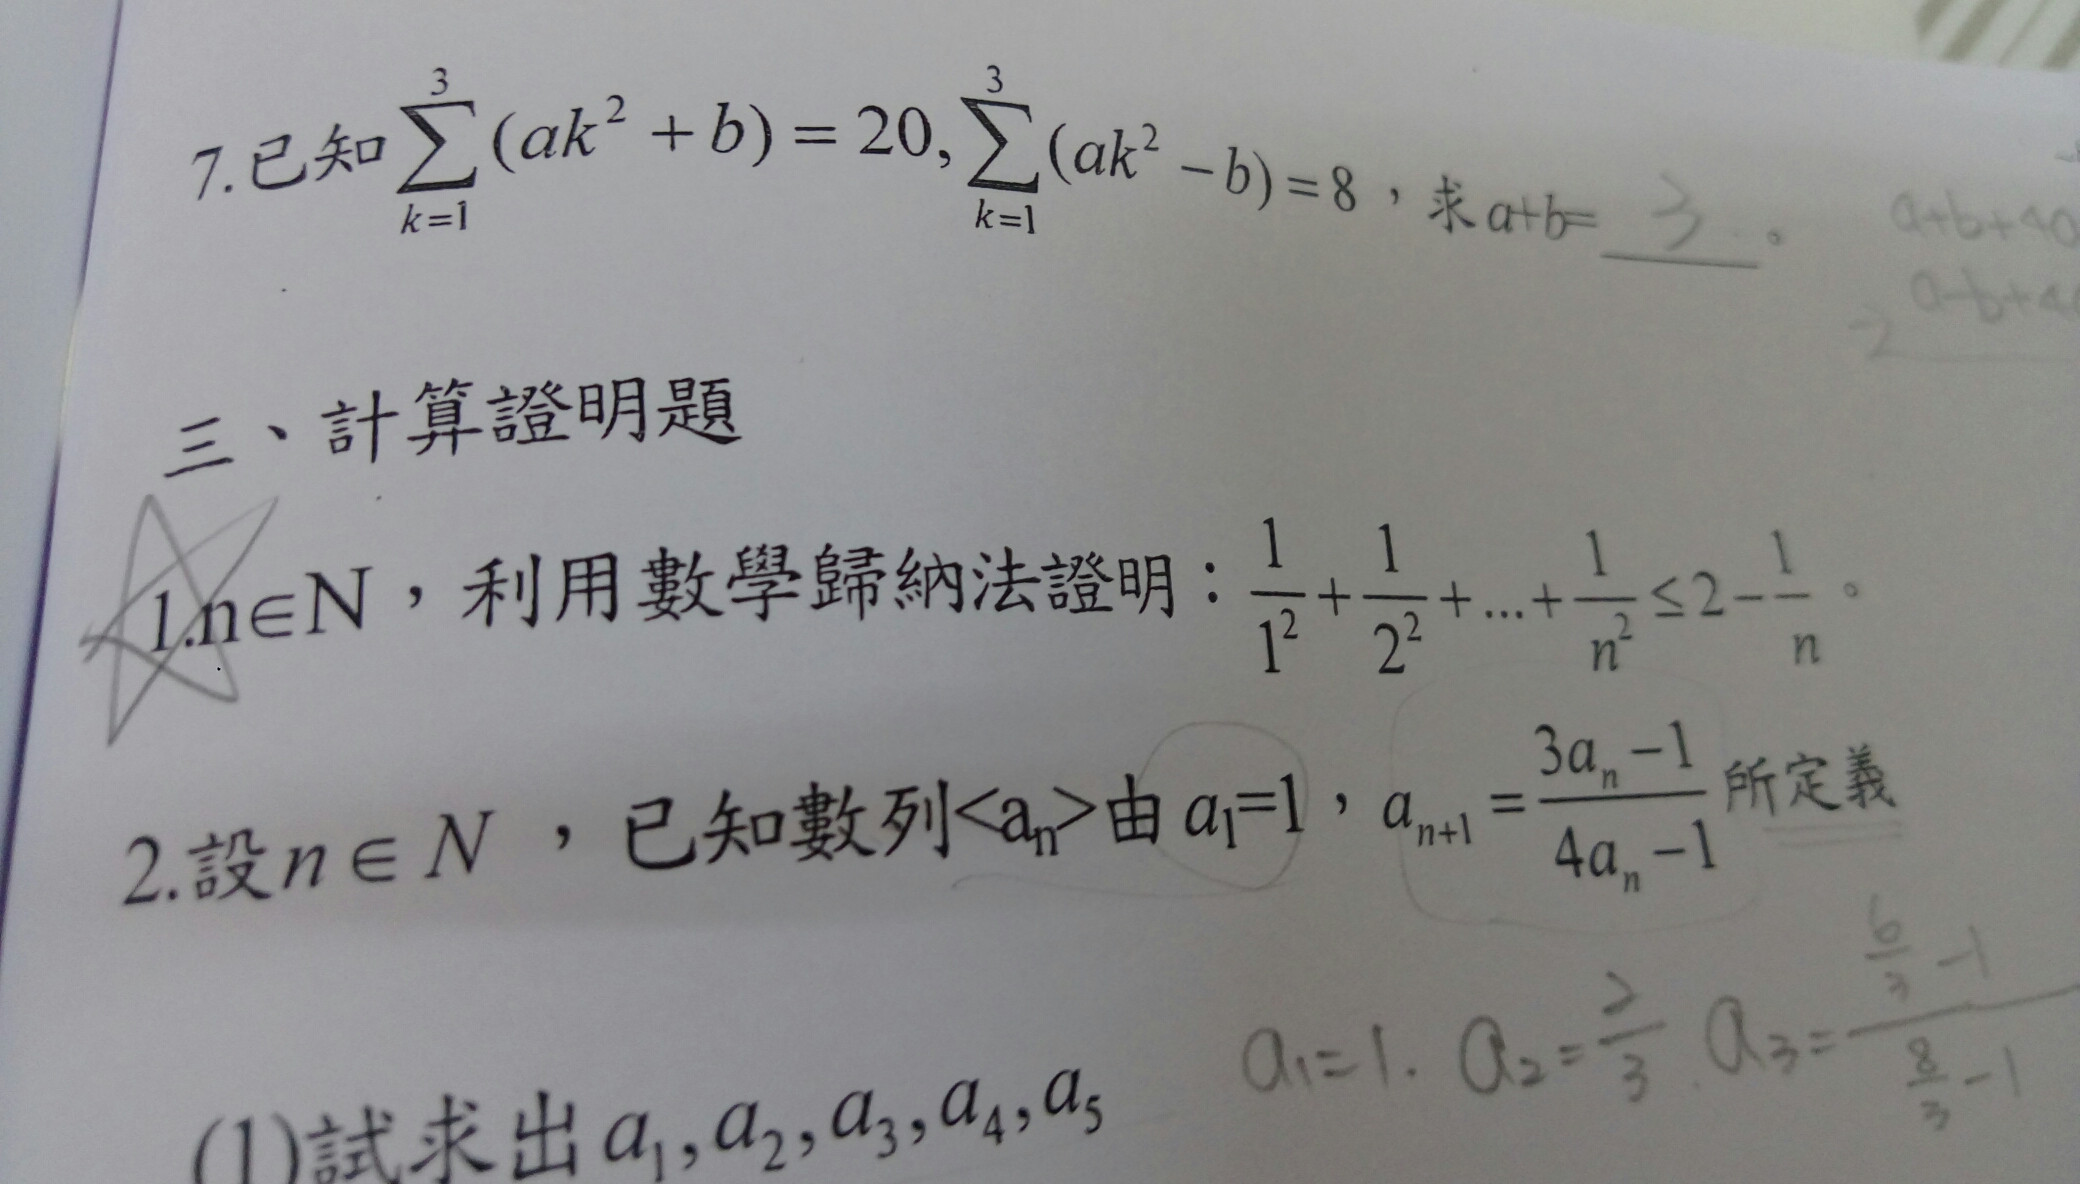 7.已知 \sum_{k=1}^{3}(ak^2+b)=20, \sum_{k=1}^{3}(ak^2-b)=8，求a+b= 3 。
a+b+4a
a-b+4a
三、計算證明題
1.n∈N，利用數學歸納法證明：\frac{1}{1^2}+\frac{1}{2^2}+...+\frac{1}{n^2}≤2-\frac{1}{n}。
2.設n∈N，已知數列<a_n>由a_1=1，a_{n+1}=\frac{3a_n-1}{4a_n-1}所定義
a_1=1. a_2=\frac{2}{3}. a_3=\frac{\frac{6}{3}-1}{\frac{8}{3}-1}
(1)試求出a_1,a_2,a_3,a_4,a_5